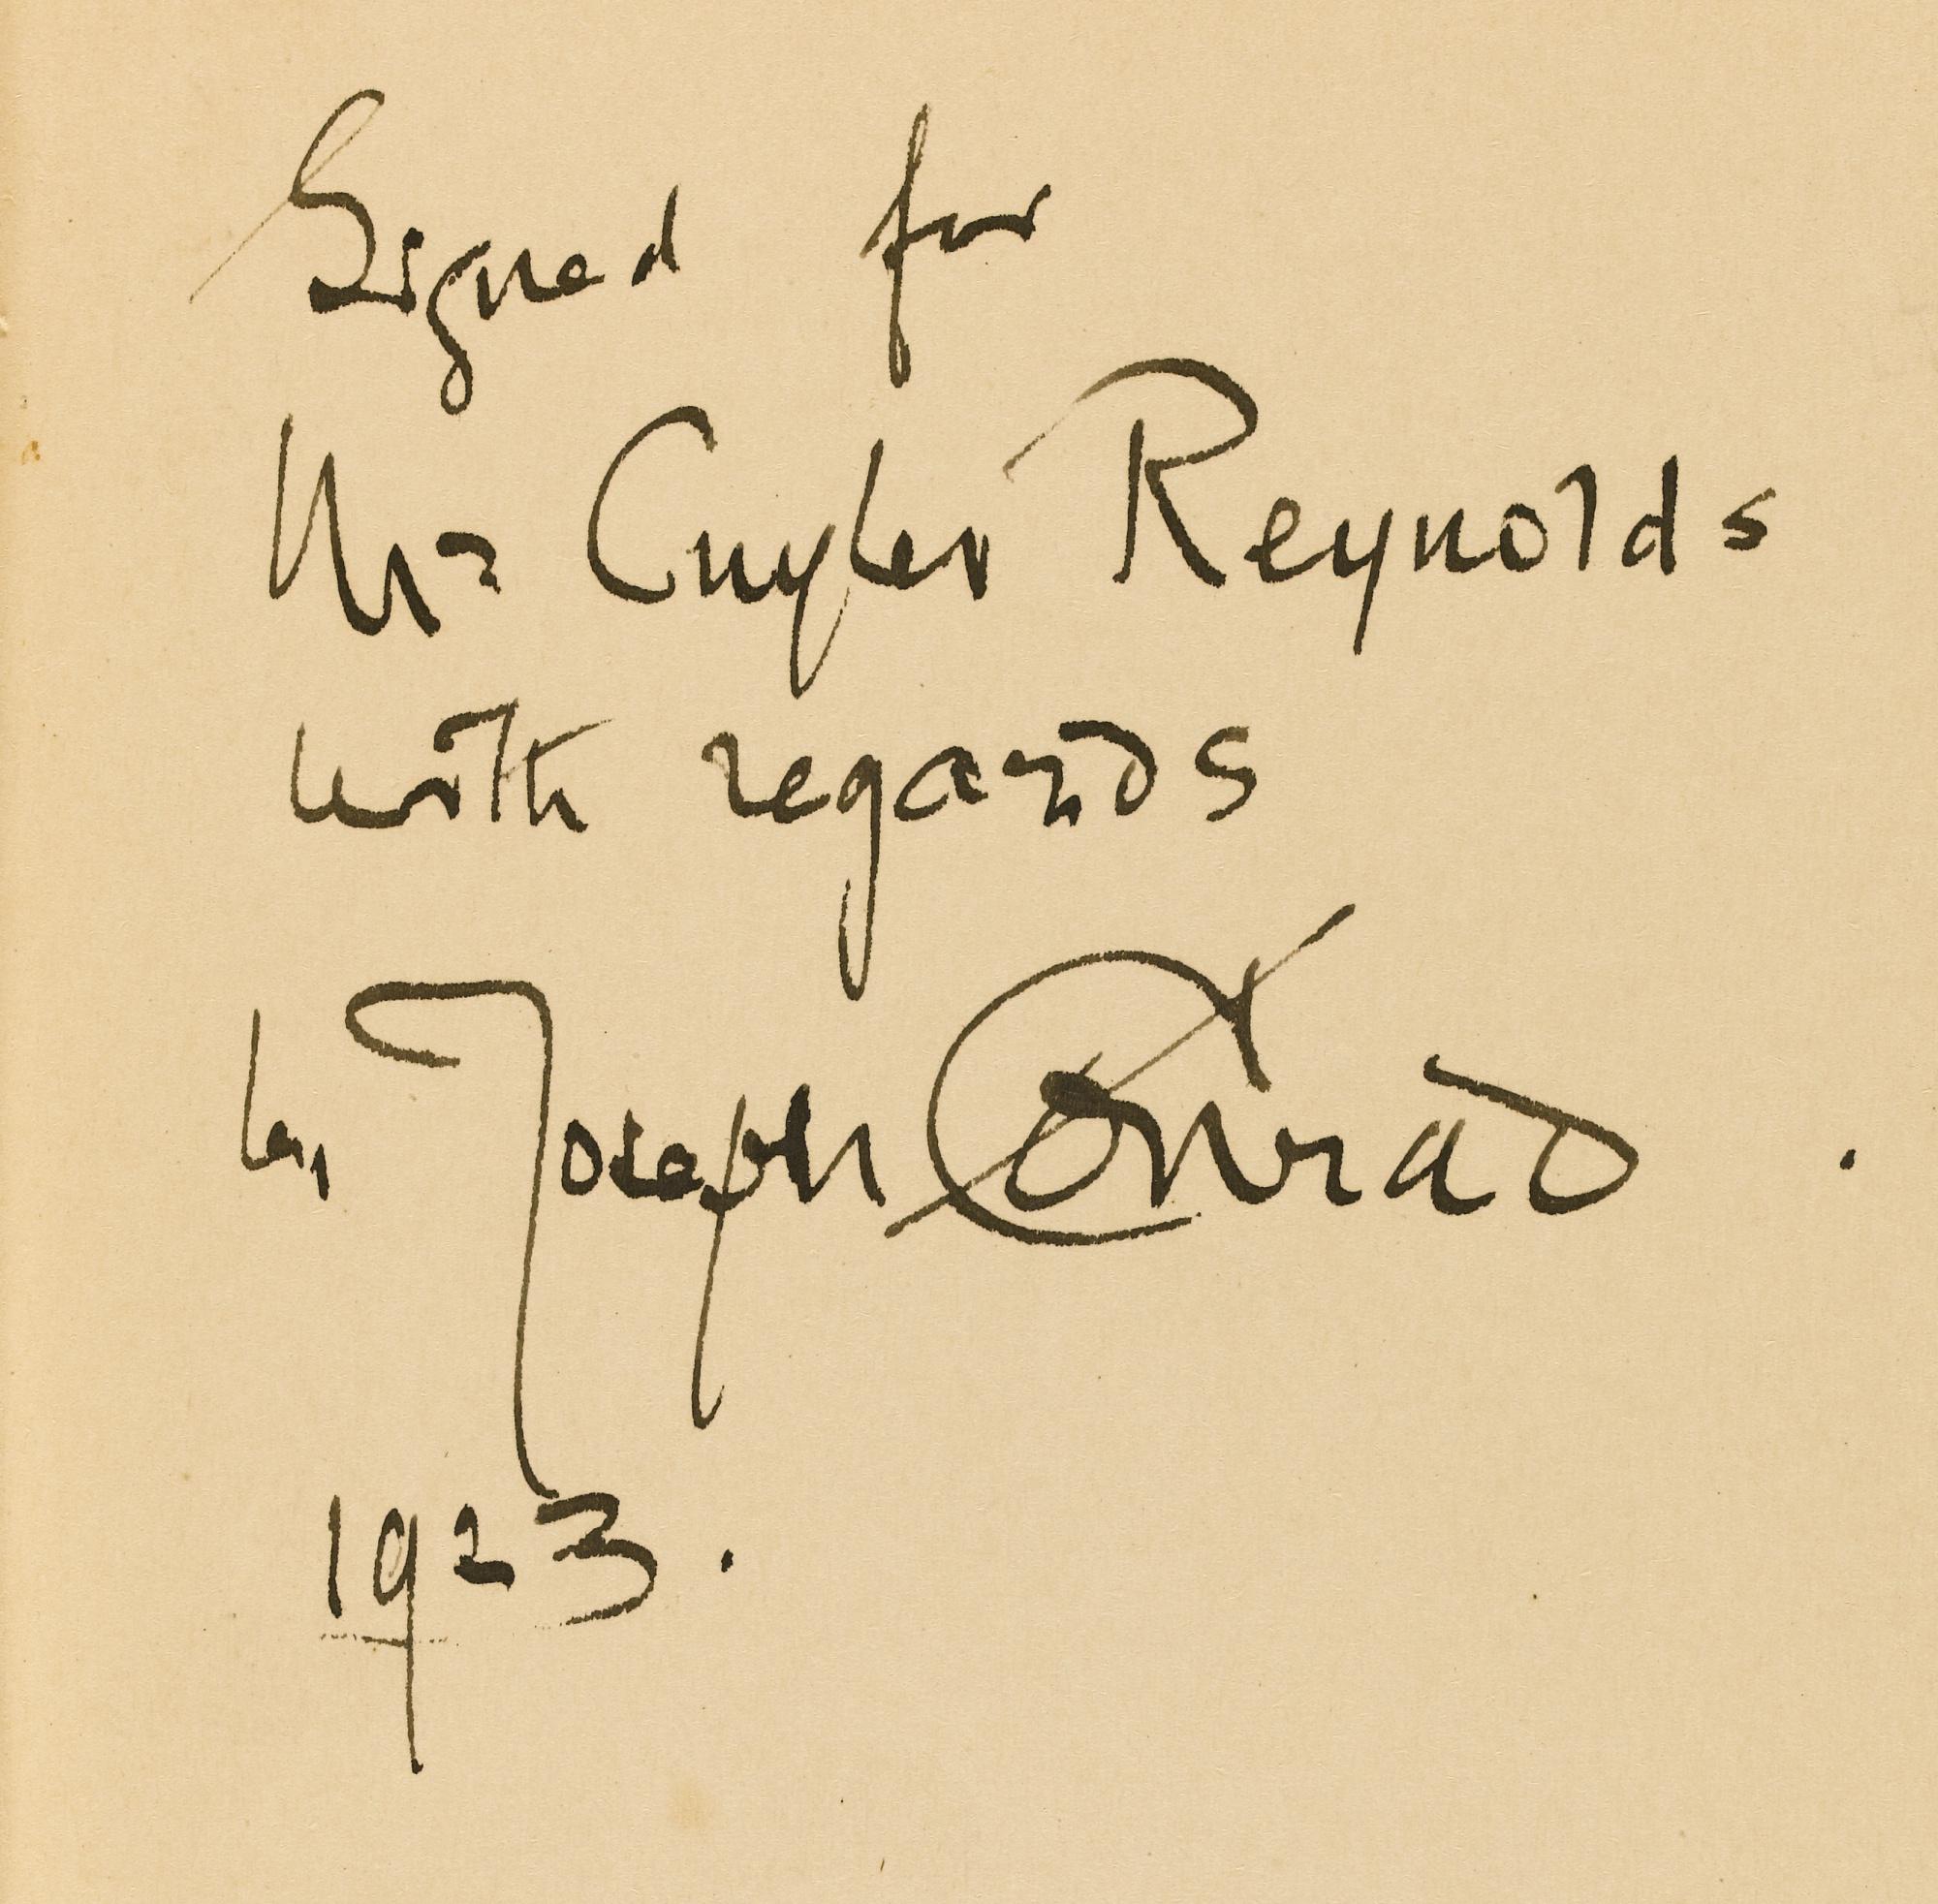 Signed for
Mr Cuyler Reynolds
with regards
by Joseph Conrad.
1923.